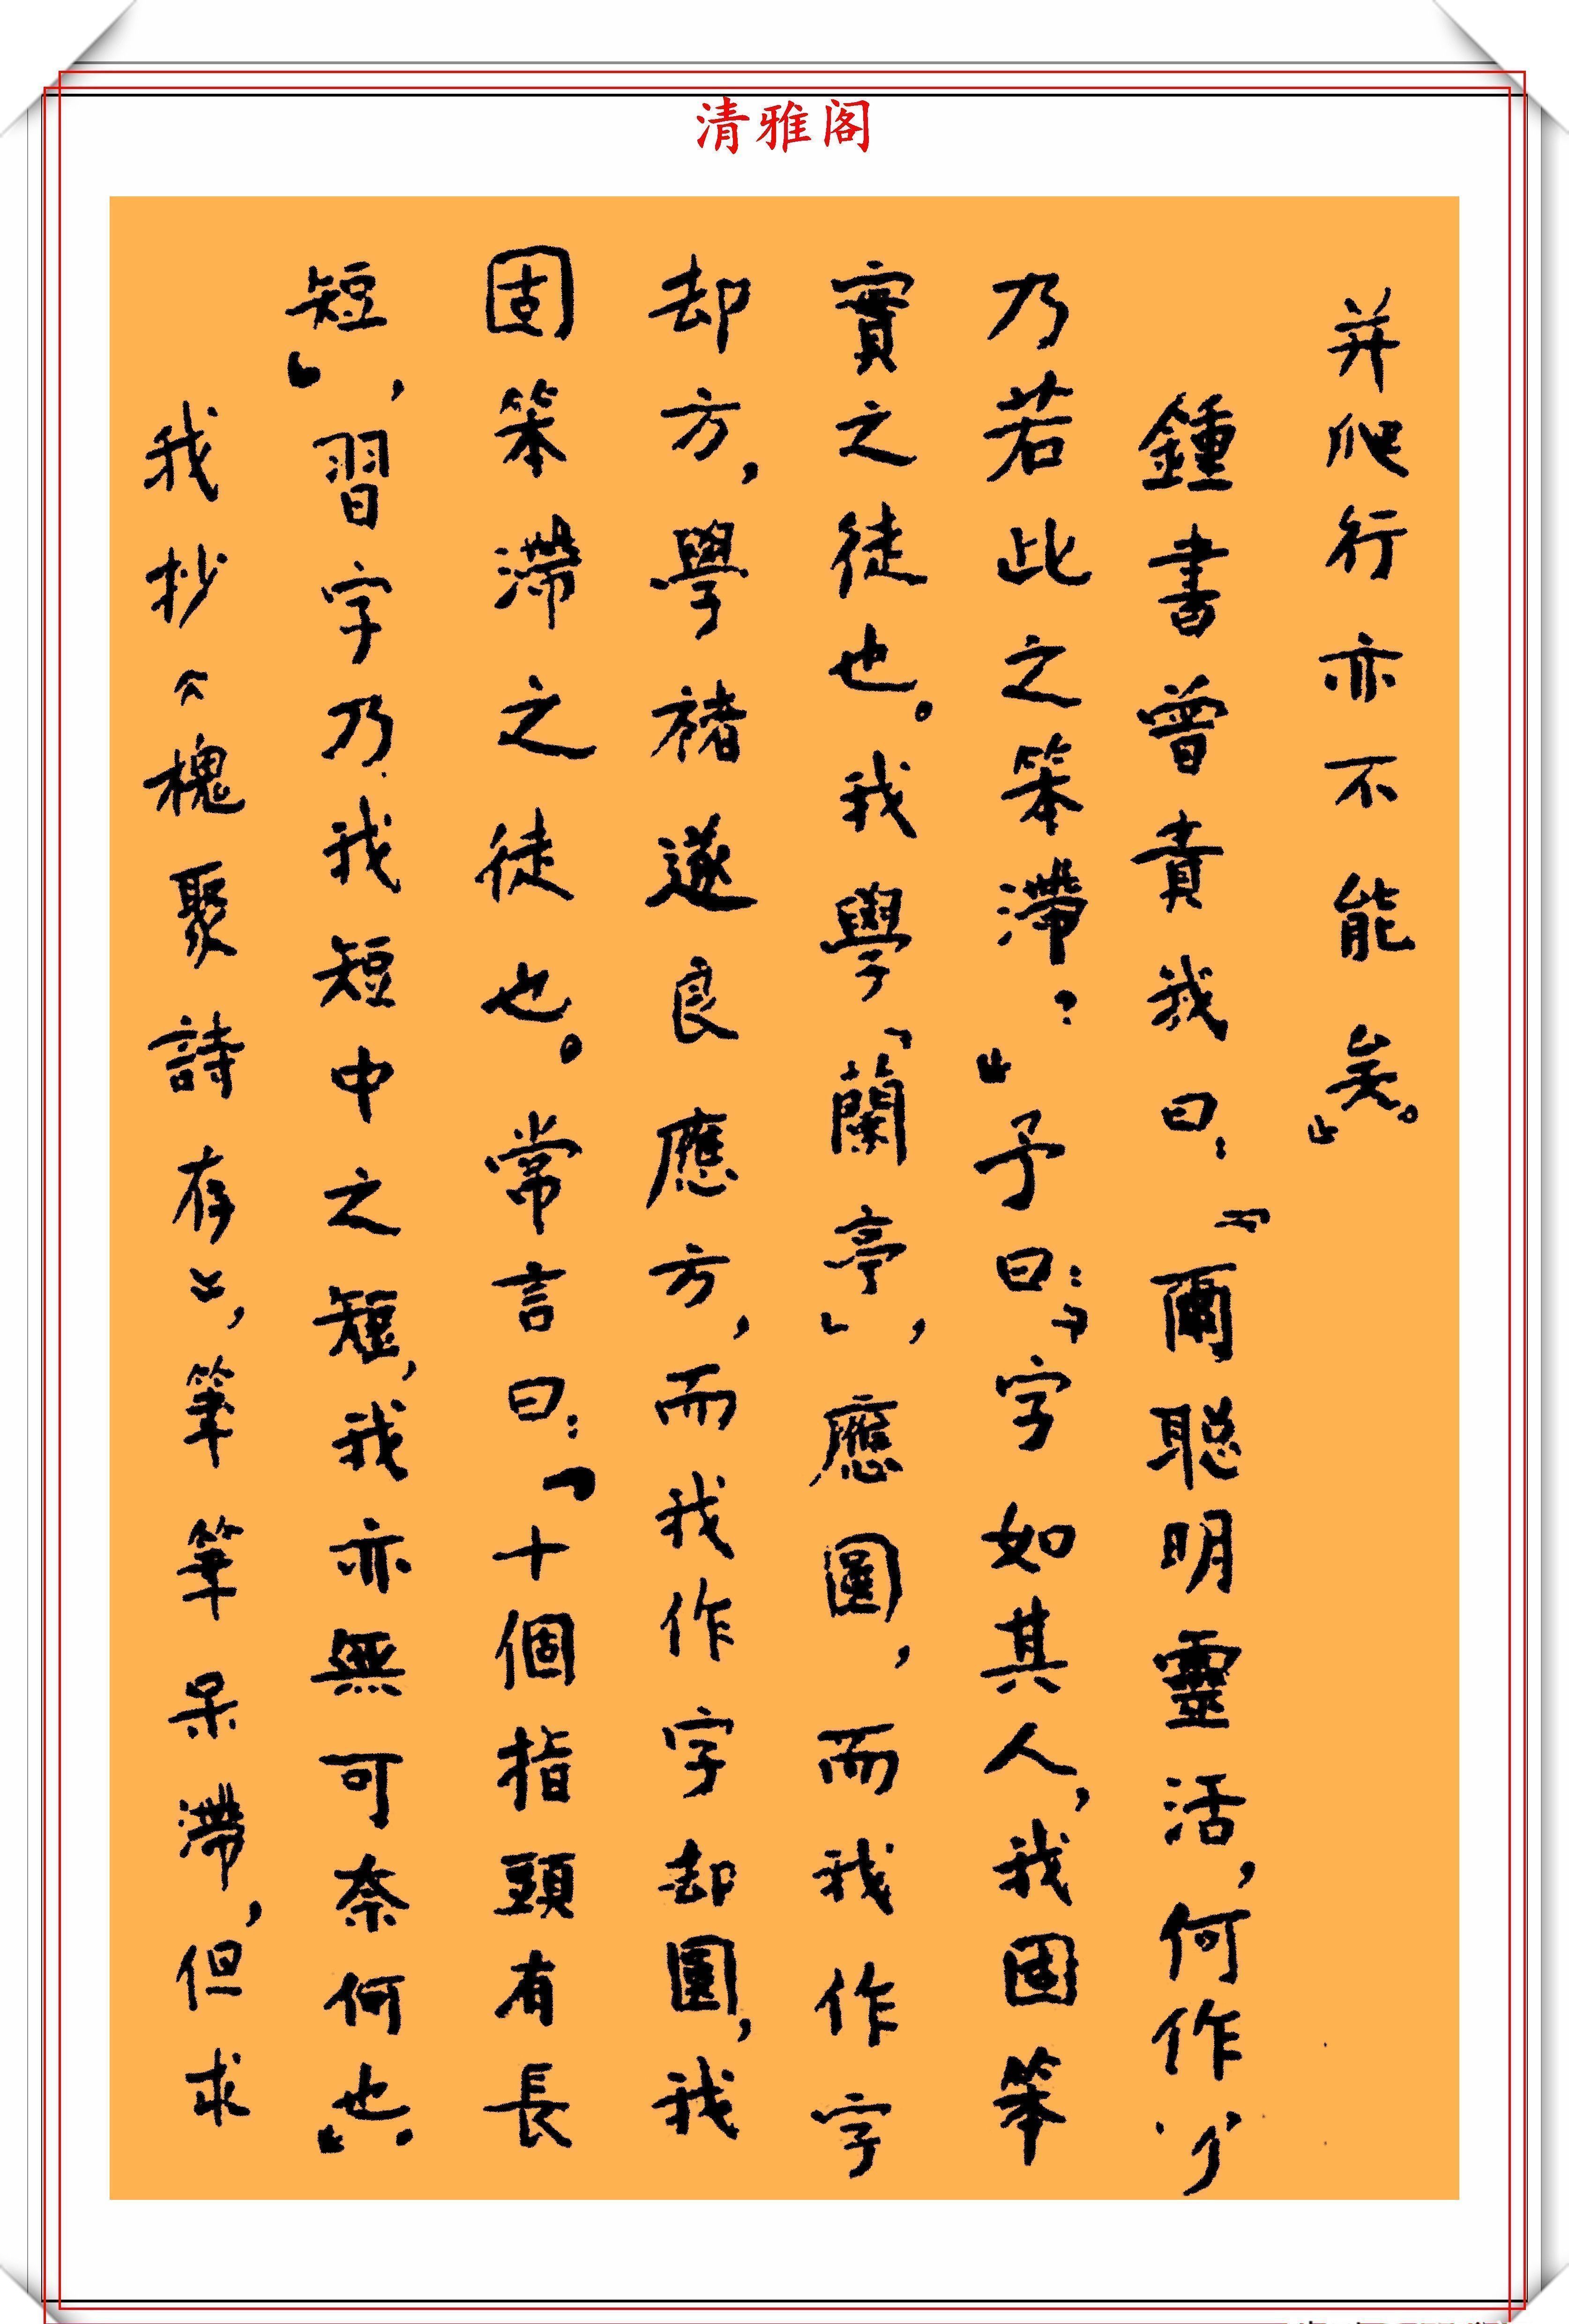 清雅阁
并爬行亦不能矣。』
鍾書曾責我曰：『爾聰明靈活，何作字
乃若此之笨滯？』予曰：『字如其人，我固笨
實之徒也。我學「蘭亭」，應圓，而我作字
却方，學褚遂良應方，而我作字却圓，我
固笨滯之徒也。常言曰：「十個指頭有長
短」，習字乃我短中之短，我亦無可奈何也。』
我抄《槐聚詩存》，筆筆呆滯，但求